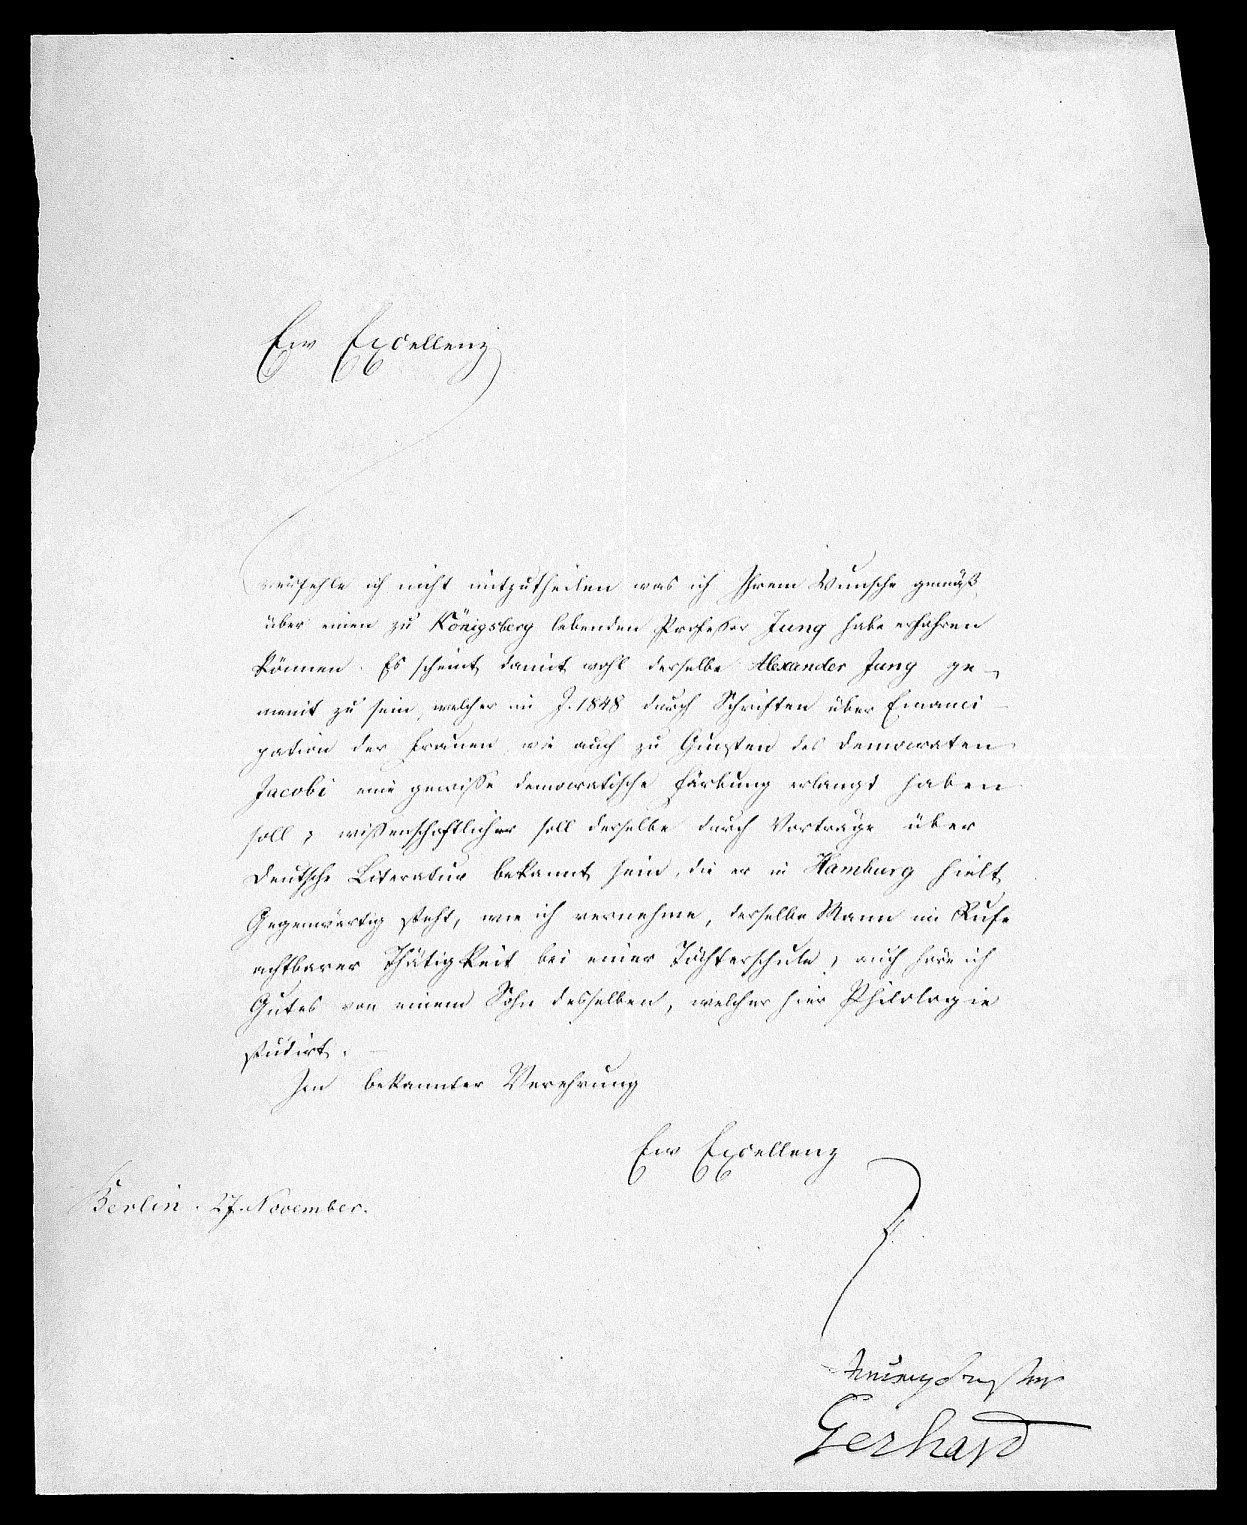 Ew Excellenz
verfehle ich nicht mitzutheilen was ich Ihrem Wunsche gemäß
über einen zu Königsberg lebenden Professor Jung habe erfahren
können. Es scheint damit wohl derselbe Alexander Jung ge-
meint zu sein, welcher im J. 1848 durch Schriften über Emanci-
pation der Frauen, wie auch zu Gunsten des Democraten
Jacobi eine gewisse democratische Färbung erlangt haben
soll; wissenschaftlicher soll derselbe durch Vorträge über
deutsche Literatur bekannt sein, die er in Hamburg hielt.
Gegenwärtig steht, wie ich vernehme, derselbe Mann im Rufe
achtbarer Thätigkeit bei einer Töchterschule; auch höre ich
Gutes von einem Sohn desselben, welcher hier Philologie
studirt.
In bekannter Verehrung
Ew Excellenz
Berlin. 27. November.
Gerhard